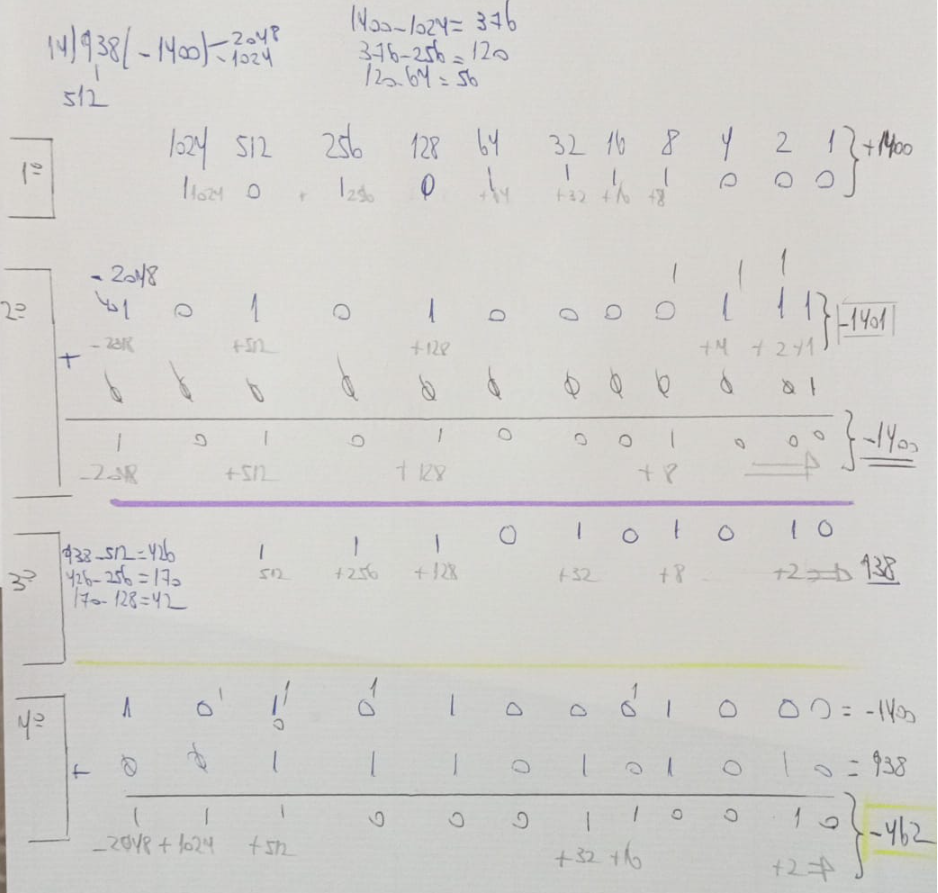 14) 938 (-1400) -2048
-1024
512
1400-1024= 376
376-256=120
120-64=56
1º
1024 512 256 128 64 32 16 8 4 2 1 } +1400
1 1024 0 + 1 256 0 1 +64 1 +32 1 +16 1 +8 0 0 0
2º
-2048
1 1 1
1 0 1 0 1 0 0 0 0 1 1 1 } -1401
-2048 +512 +128 +4 +2+1
+ 0 0 0 0 0 0 0 0 0 0 0 1
1 0 1 0 1 0 0 0 1 0 0 0 } -1400
-2048 +512 +128 +8 =>
3º
938-512=426
426-256=170
170-128=42
1 1 1 0 1 0 1 0 1 0
512 +256 +128 +32 +8 +2 => 938
4º
1 1 1 1
1 0 1 0 1 0 0 0 1 0 0 0 = -1400
0
+ 0 0 1 1 1 0 1 0 1 0 1 0 = 938
1 1 1 0 0 0 1 1 0 0 1 0 } -462
-2048+1024 +512 +32 +16 +2 =>